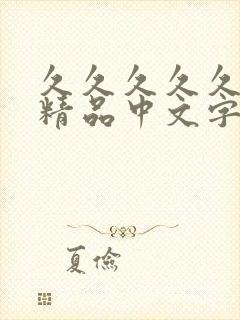 久久久久久
精品中文字
夏俭